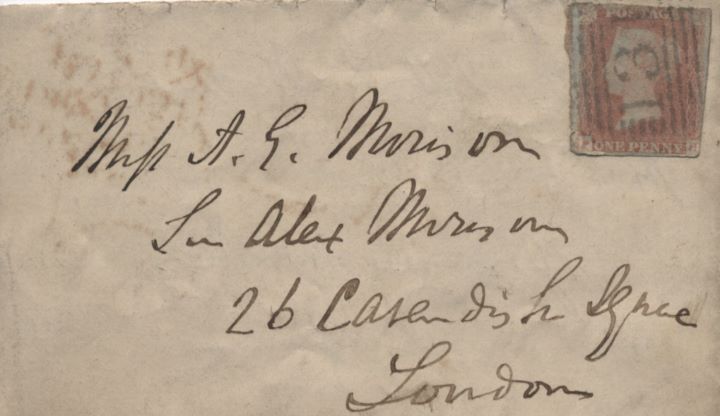 POSTAGE
13
ONE PENNY
Miss A. G. Morison
Sir Alex Morison
26 Cavendish Square
London